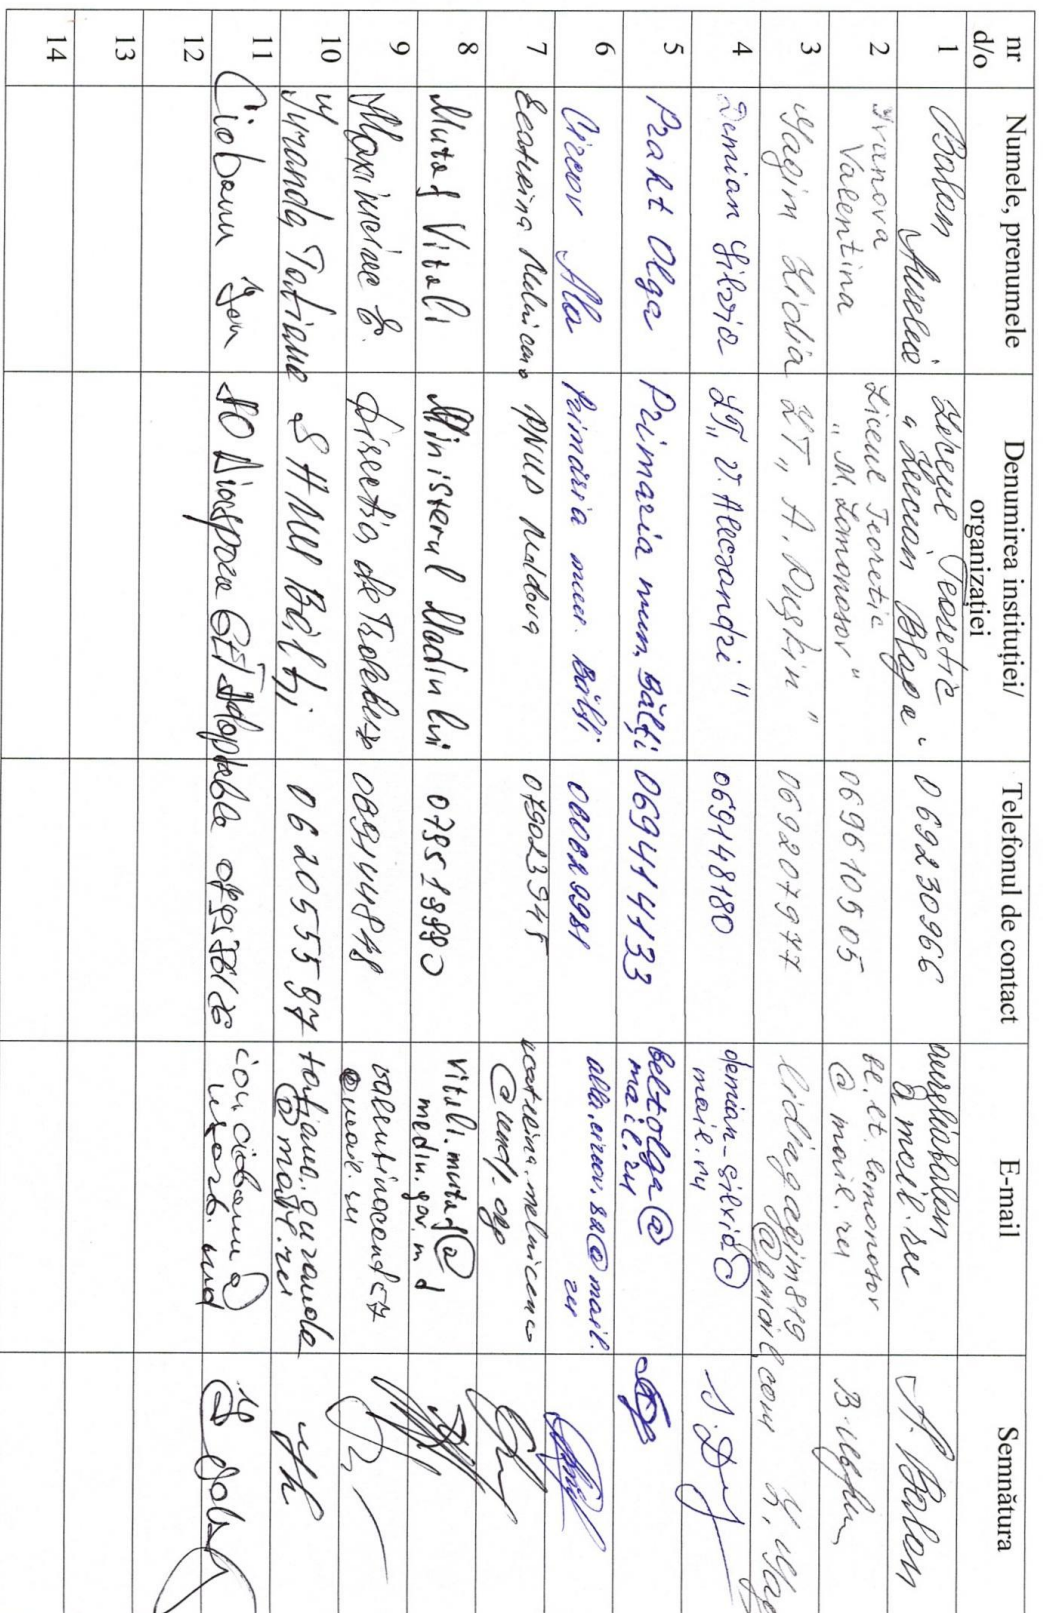 nr d/o
Numele, prenumele
Denumirea instituției/ organizației
Telefonul de contact
E-mail
Semnătura
1
Balan Aurelia
Liceul Teoretic
„Lucian Blaga"
069230966
aureliabalan
@mail.ru
A. Balan
2
Ivanova
Valentina
Liceul Teoretic
„M. Lomonosov"
069610505
bl.lt.lomonosov
@mail.ru
3
Gagim Lidia
LT „A. Pușkin"
069207977
lidiagagim819
@gmail.com
4
Demian Silvia
LT „V. Alecsandri"
069148180
demian-silvia@
mail.ru
5
Prant Olga
Primaria mun. Bălți
069414133
beltolga@
mail.ru
6
Circov Ala
Primăria mun. Bălți
7
Ecaterina Melniceno
PNUD Moldova
079023945
ecaterina.melniceno
@undp.org
8
Mutaf Vitali
Ministerul Mediului
079518990
vitali.mutaf@
mediu.gov.md
9
Direcția de
@mail.ru
10
Tatiana
Bălți
062055597
tatiana.guranda
@mail.ru
11
Ciobanu Ion
AO Diaspora
ion.ciobanu@
12
13
14